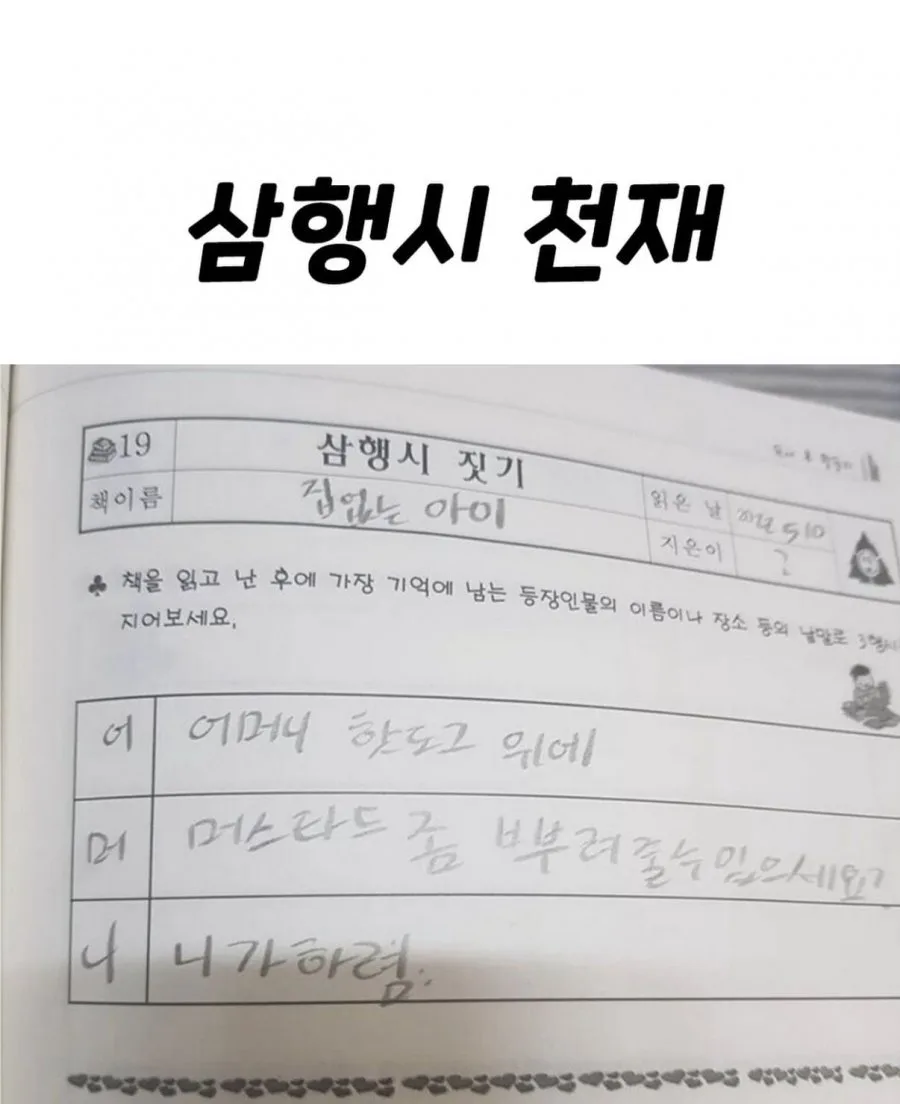 삼행시 천재
19 삼행시 짓기
책이름 집없는 아이
읽은 날
지은이 ?
♣ 책을 읽고 난 후에 가장 기억에 남는 등장인물의 이름이나 장소 등의 낱말로 3행시
지어보세요.
어 어머니 핫도그 위에
머 머스타드 좀 뿌려줄수 있으세요?
니 니가하렴.